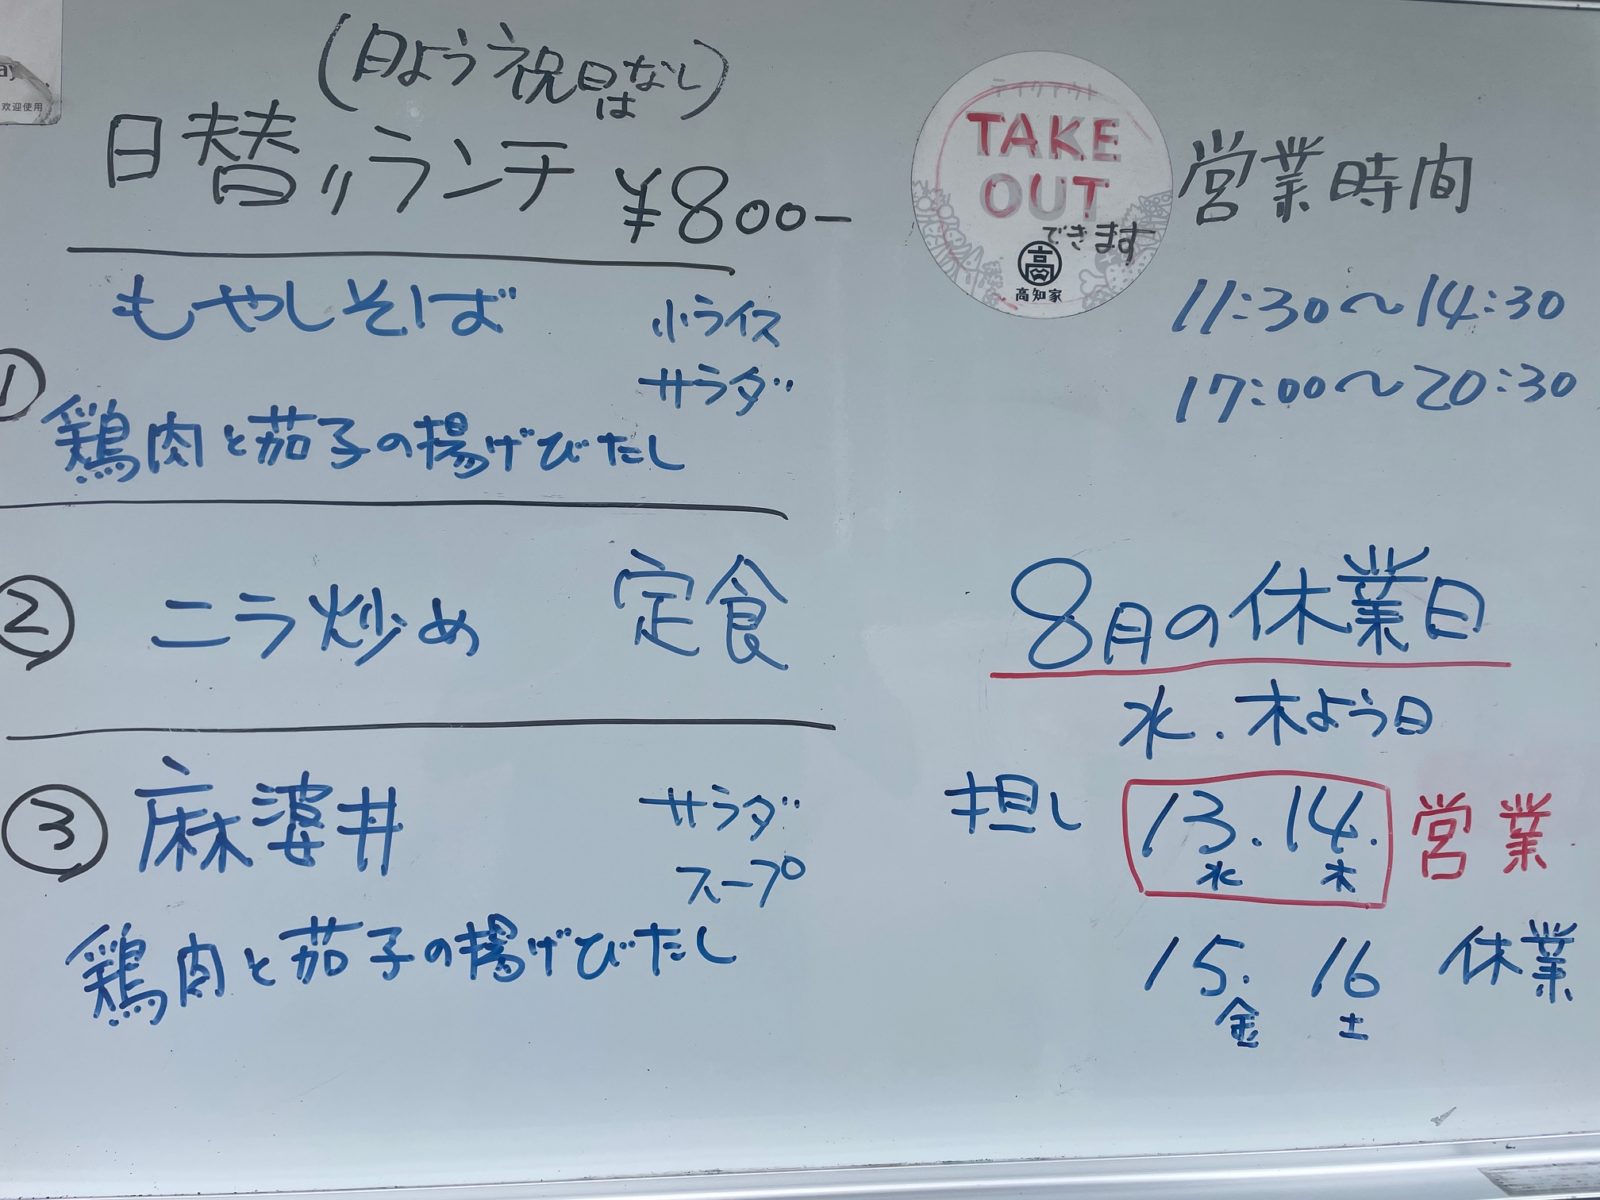 ay
欢迎使用
(日よう祝日はなし)
日替りランチ ¥800-
もやしそば 小ライス
サラダ
①
鶏肉と茄子の揚げびたし
② ニラ炒め 定食
③ 麻婆丼 サラダ
スープ
鶏肉と茄子の揚げびたし
テイクアウト
TAKE
OUT
できます
高知家
営業時間
11:30〜14:30
17:00〜20:30
8月の休業日
水.木よう日
担し 13.14. 営業
水 木
15. 16 休業
金 土